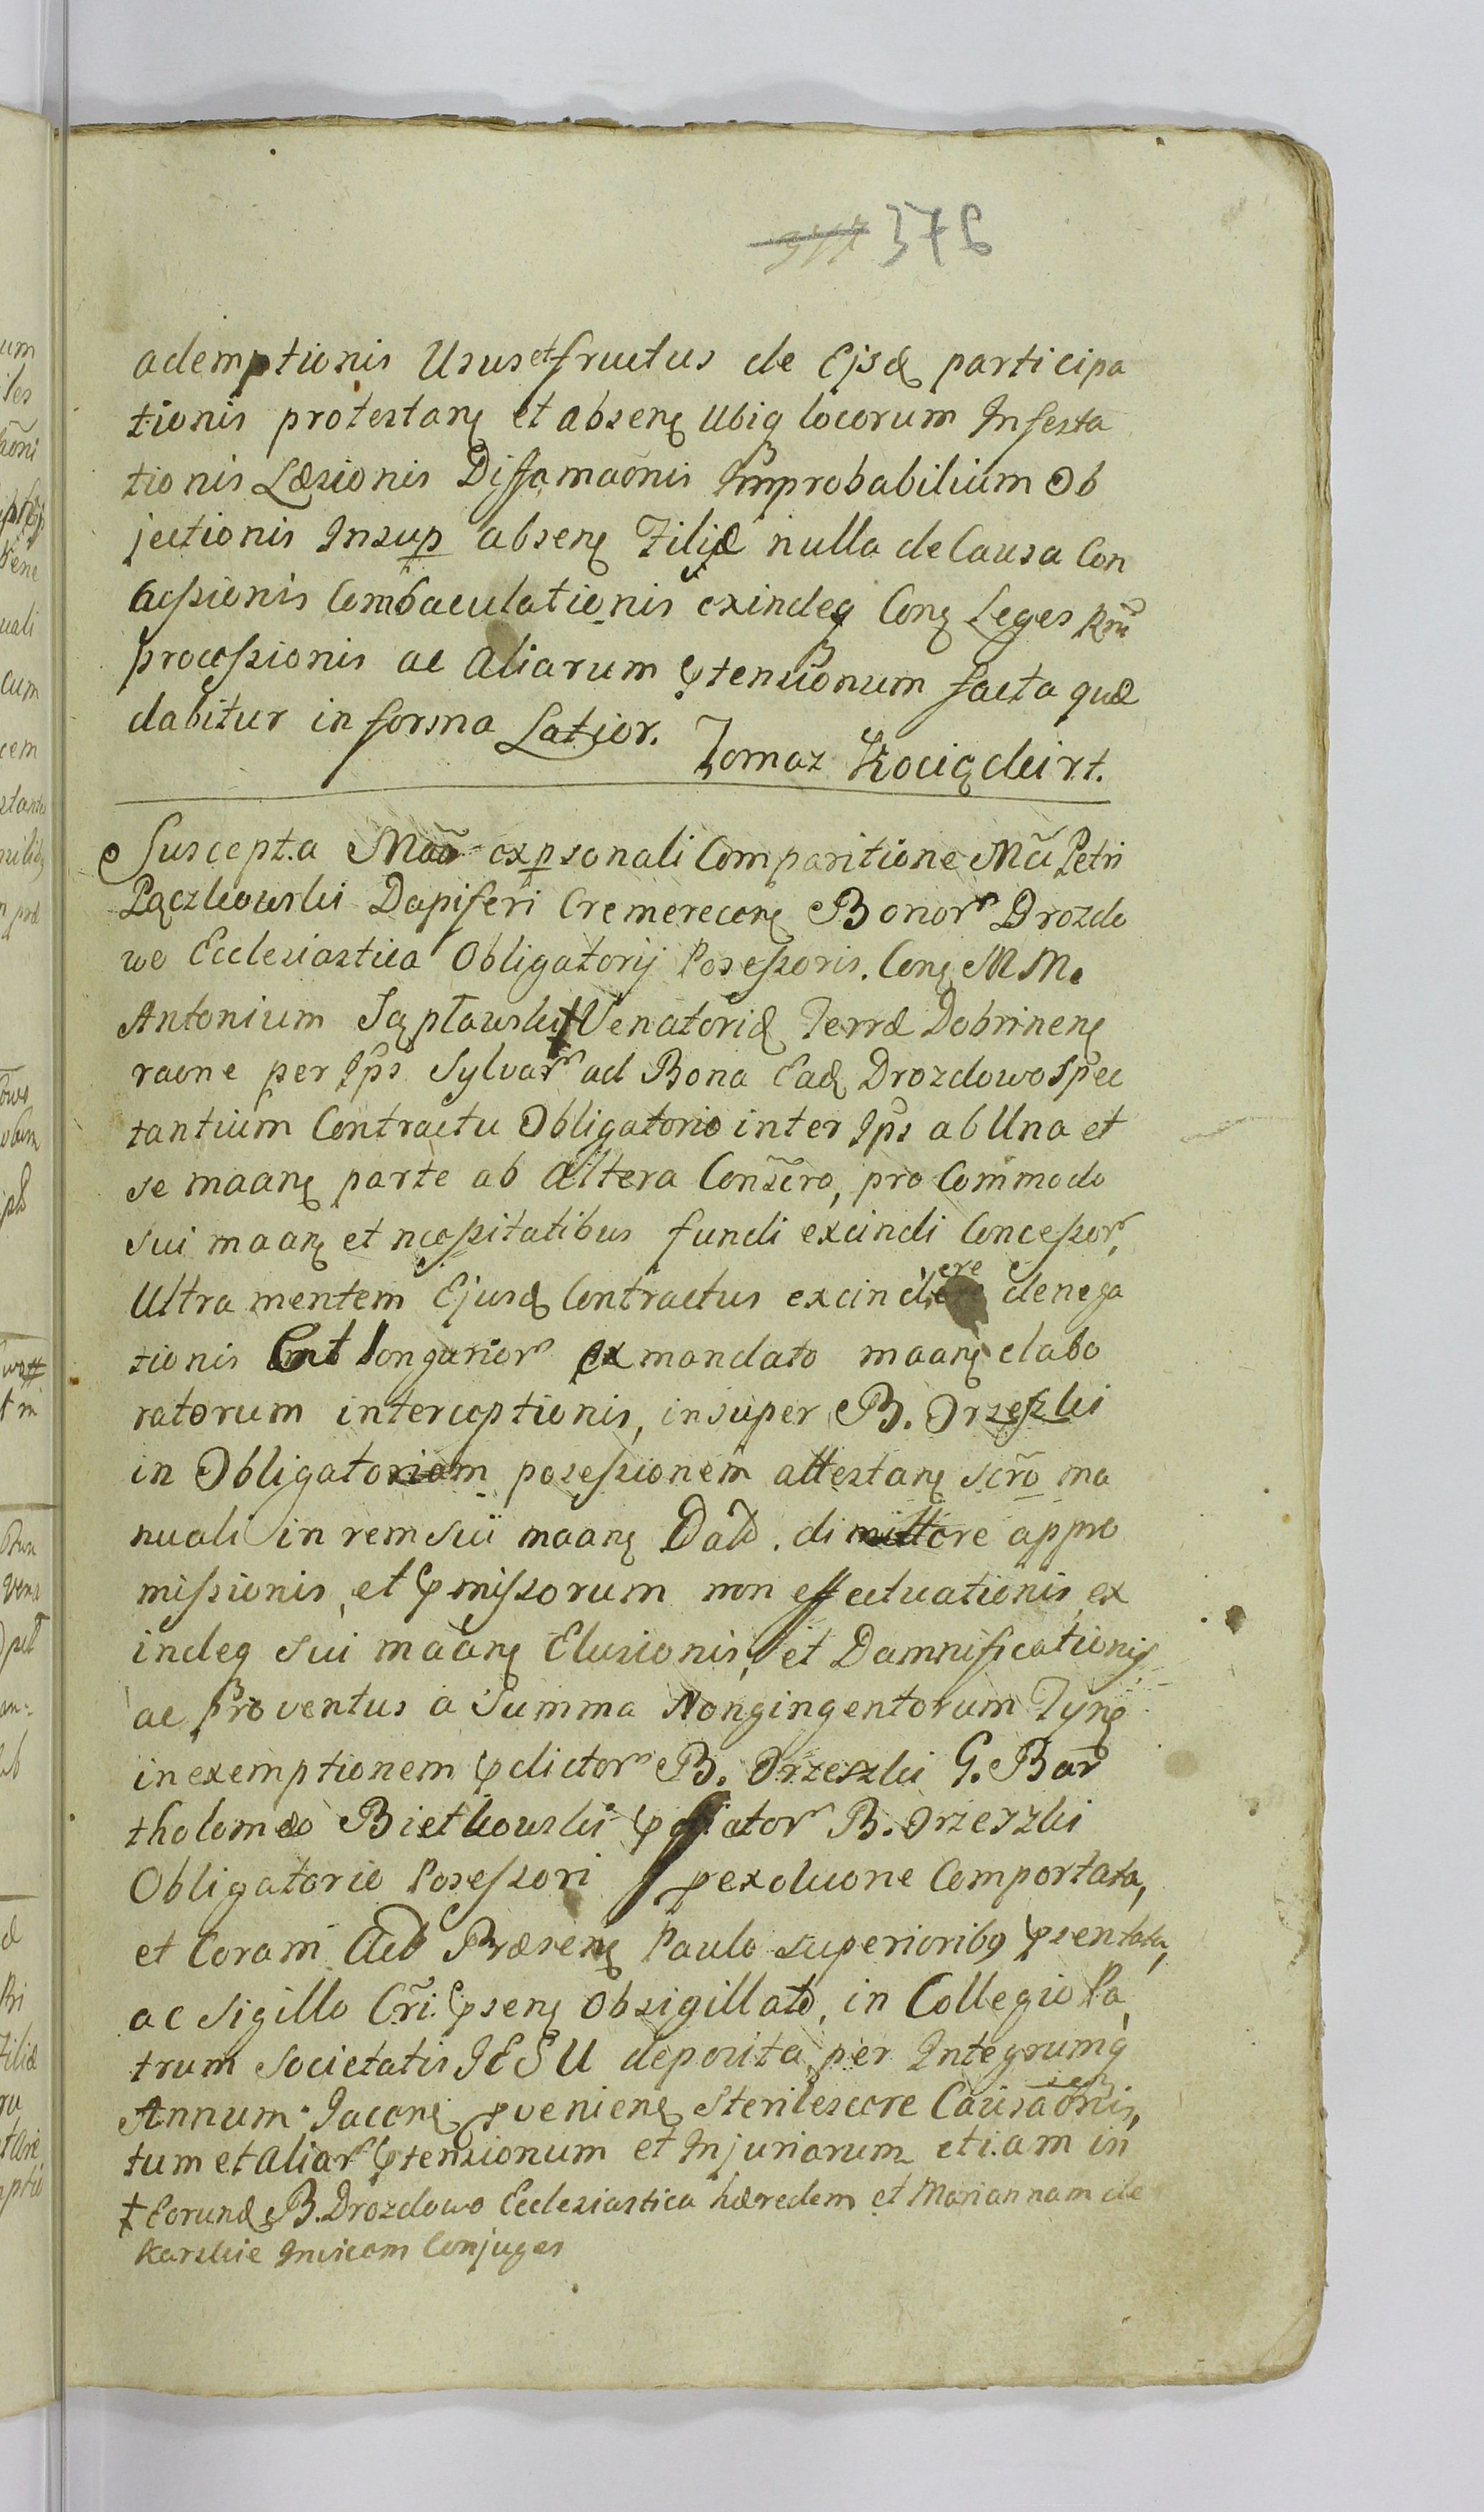 376
ademptionis Usus et fructus de Ejsd participa
tionis protestanę et absenę Ubiq locorum Infesta
tionis Læsionis Diffamaõnis Improbabilium Ob
jectionis Insup absenę Filiæ nulla de Causa Con
cussionis Combaculationis exindeq Conę Leges Rni
processionis ac Aliarum ptensionum facta quæ
dabitur in forma Latior. Tomaz
Suscepta ex psonali Comparitione Mci Petri
Pączkowski Dapiferi Cremerecenę Bonor Drozdo
wo Ecclesiastica Obligatorij Possessoris. Conę MM.
Antonium Venatoridę Terræ Dobrinenę
raone per Ips Sylvar ad Bona Eadę Drozdowo Spec
tantium Contractu Obligatorio inter Ips ab Una et
se maanę parte ab Altera Conscro, pro Commodo
sui maanę et ncessitatibus fundi excindi Concessor,
Ultra mentem Ejusdę Contractus excindere denega
tionis longarior ex mandato maanę elabo
ratorum interceptionis, insuper B. Orzeszki
in Obligatoriam possessionem attestanę scro ma
nuali in rem sui maanę Dato. dimittere appro
missionis, et pmissorum non effectuationis, ex
indeq sui maanę Elusionis, et Damnificationis
ac Proventus a Summa Nongingentorum Tynę
in exemptionem pdictor B. Orzeszki G. Bar
tholomæo Bietkowski B. Orzeszki
Obligatorio Possessori pexolvone Comportata,
et Coram Præsenę Paulo superiorib9 psentata,
ac Sigillo Cri. psenę Obsigillato, in Collegio Pa
trum Societatis IESU deposita, per Integrumq
Annum Jacenę pvenienę Sterilescere Causaõnis,
tum et aliar ptensionum et Injuriarum etiam in
† Eorundę B. Drozdowo Ecclesiastica hæredem et Mariannam de
Karskie Invicem Conjuges